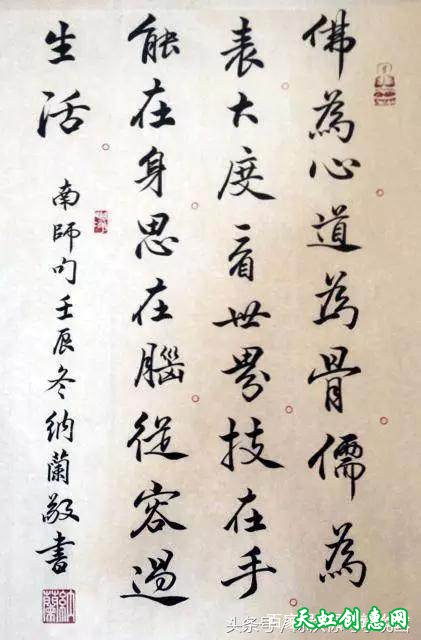 佛為心道為骨儒為
表大度看世界技在手
能在身思在腦從容過
生活
南師句壬辰冬納蘭敬書
天虹创惠网